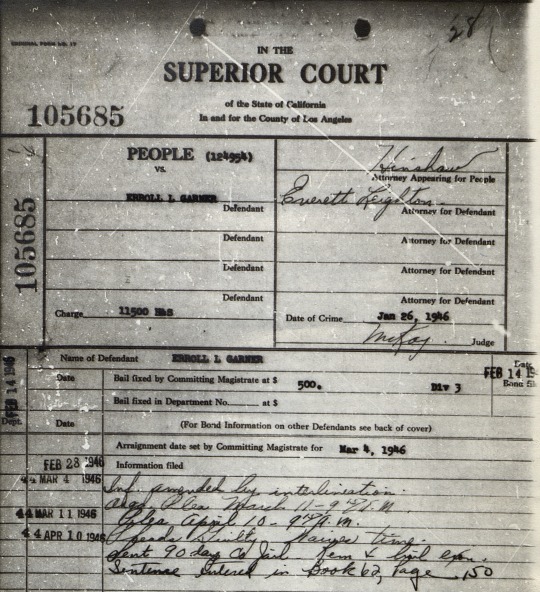 CRIMINAL FORM NO. 17
28
IN THE
SUPERIOR COURT
of the State of California
In and for the County of Los Angeles
105685
105685
PEOPLE (124994)
VS.
ERROLL L GARNER
Defendant
Defendant
Defendant
Defendant
Charge 11500 H&S
Hinshaw
Attorney Appearing for People
Everett Leighton
Attorney for Defendant
Attorney for Defendant
Attorney for Defendant
Attorney for Defendant
Date of Crime Jan 26, 1946
McKay. Judge
Name of Defendant ERROLL L GARNER
FEB 14 1946
Dept.
Date Bail fixed by Committing Magistrate at $ 500. Div 3
FEB 14 19
Date
Bond
Bail fixed in Department No. at $
Date (For Bond Information on other Defendants see back of cover)
Arraignment date set by Committing Magistrate for Mar 4, 1946
FEB 28 1946 Information filed
44 MAR 4 1946 Inf. amended by interlineation.
Plea March 11 - 9 A.M.
44 MAR 11 1946 Plea April 10 - 9 A.M.
44 APR 10 1946 Pleads Guilty Waives time.
Sent 90 day Co Jail Rem & bail exon.
Sentence Entered in Book 62, Page 150